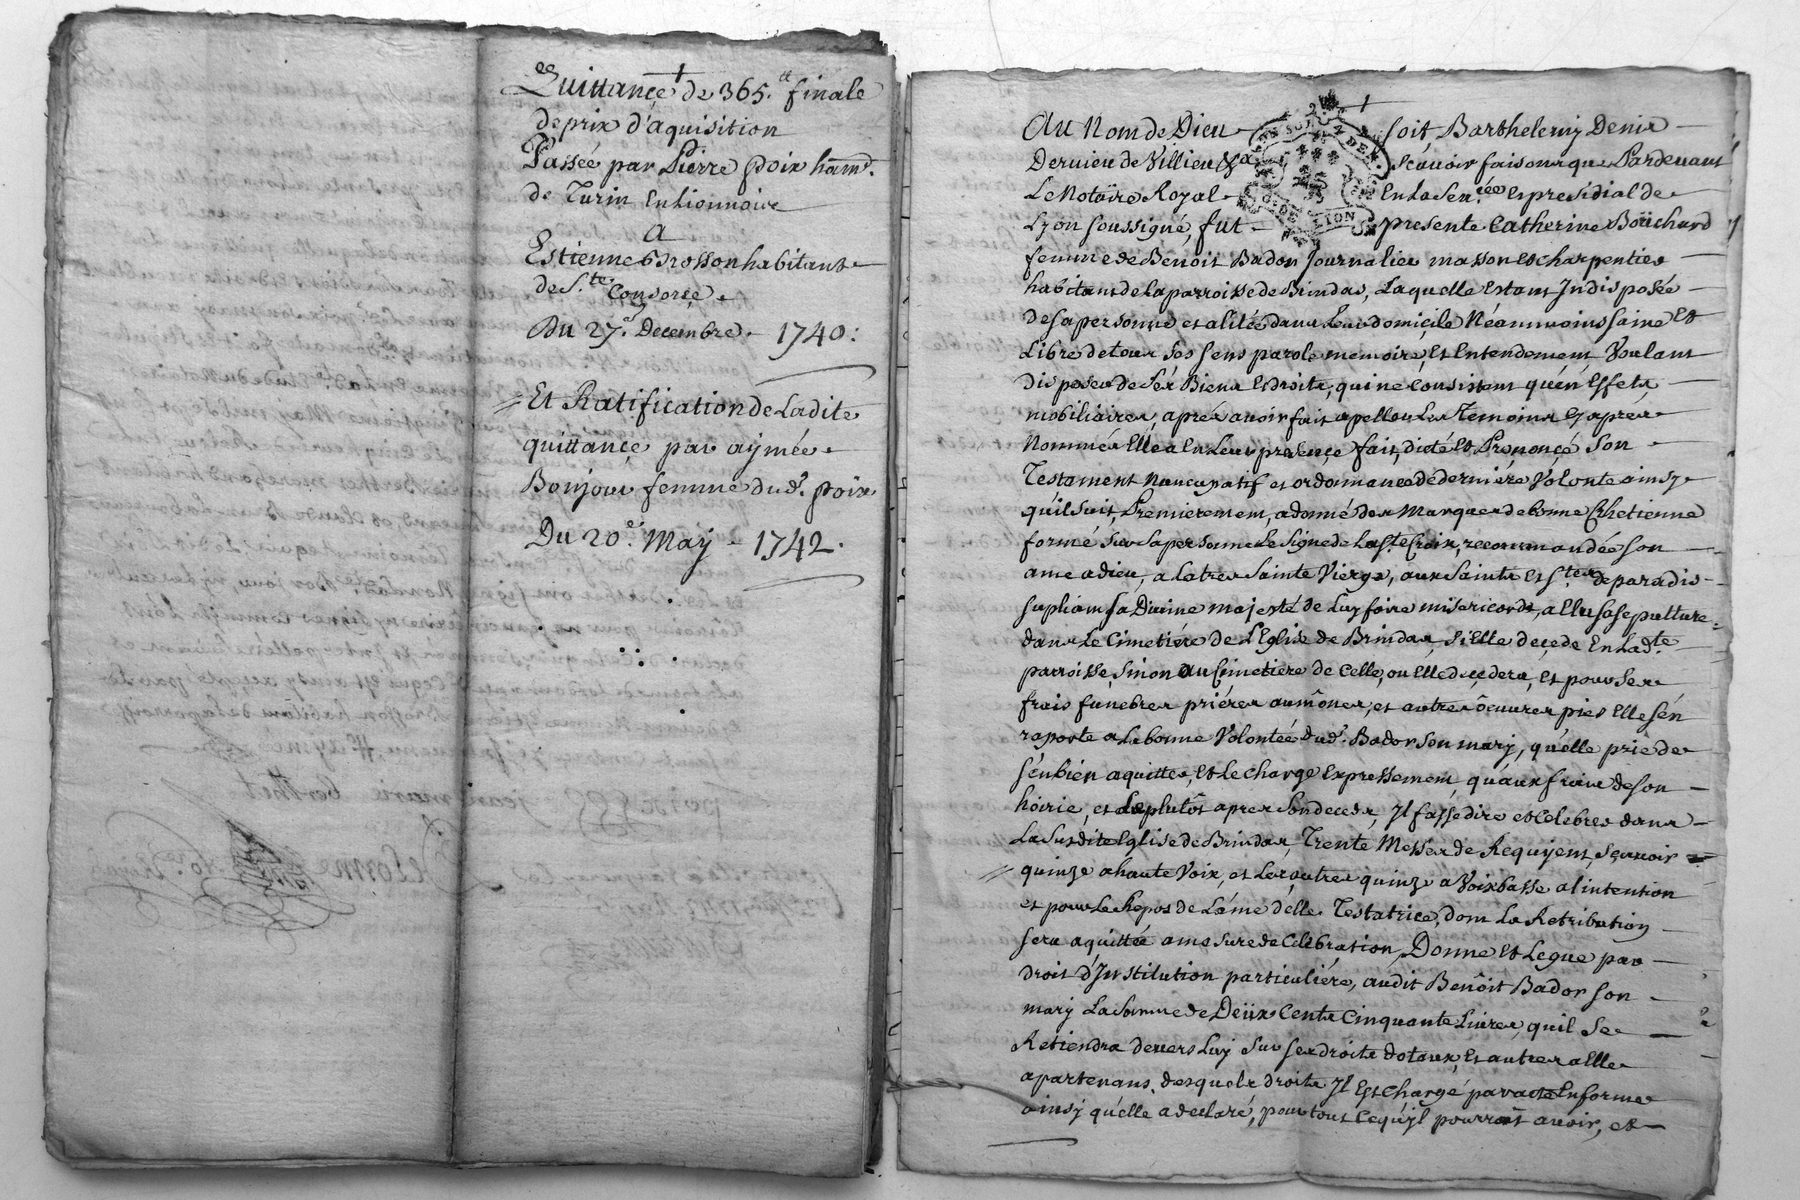 Quittance de 365.tt finale
de prix d'aquisition
Passée par Pierre poix ham.
de Turin En Lionnoice
A
Estienne Brosson habitant
de S.te Consorse
Du 27.e Decembre 1740:
Et Ratification de Ladite
quittance par aÿmée
Bonjour femme dud.t poix
Du 20.e Maÿ 1742.
Au Nom de Dieu soit Barthelemy Denis
Dervieu de Villieu &a scavoir faisons que Pardevant
Le Notaire Royal En La Sen.cée Et presidial de
Lyon soussigné, fut presente Catherine Boüchard
femme de Benoit Bador Journalier masson Et charpentier
habitant de la parroisse de Brindas, Laquelle Estant Indisposée
de sa personne et alitée dans Leur domicile Néanmoins saine Et
Libre de tous ses sens parole memoire, Et Entendement Voulant
disposer de sés Biens Et droits, qui ne Consistent qu'én Effets
mobiliaires, aprés avoir fait apeller Les temoins Cy aprés
Nommés Elle a En Leur presence fait, dicté Et Prononcé son
Testament Nuncupatif et ordonnance de derniére Volonté ainsy
qu'il suit, Premierement, a donné des Marques de bonne Chretienne
formé sur sa personne Le signe de La S.te Croix, recommandée son
ame a dieu, a la tres Sainte Vierge, aux Saints Et S.tes de paradis
supliant sa Divine majesté de Luy faire misericorde, a Elu sa sepulture
dans Le Cimetiére de L'Eglise de Brindas, si Elle decede En Lad.te
parroisse, sinon au Cimetiere de Celle, ou Elle decedera, Et pour ses
frais funebres priéres aumônes, et autres oeuvres pies Elle s'én
raporte a La bonne Volontée dud.t Bador son mary, qu'elle prie de
s'én bien aquitter, Et Le charge Expressement qu'aux frais de son
hoirie, et Le plutôt apres son deceds, Il fasse dire et Celebrer dans
La susdite Eglise de Brindas, Trente Messes de Requiem, scavoir
quinze a haute Voix, et Les autres quinze a Voix basse a l'intention
et pour Le Repos de L'ame d'elle Testatrice, dont La Retribution
sera aquittée a mesure de Célébration, Donne Et Legue par
droit d'Institution particuliére, audit Benôit Bador son
mary La Somme de Deüx Cents Cinquante Livres, qu'il Se
Retiendra devers Luy Sur ses droits dotaux, Et autres a Elle
apartenans, desquels droits Il Est Chargé par acte En forme
ainsy qu'elle a declaré, pour tout Ce qu'il pourroit avoir, et